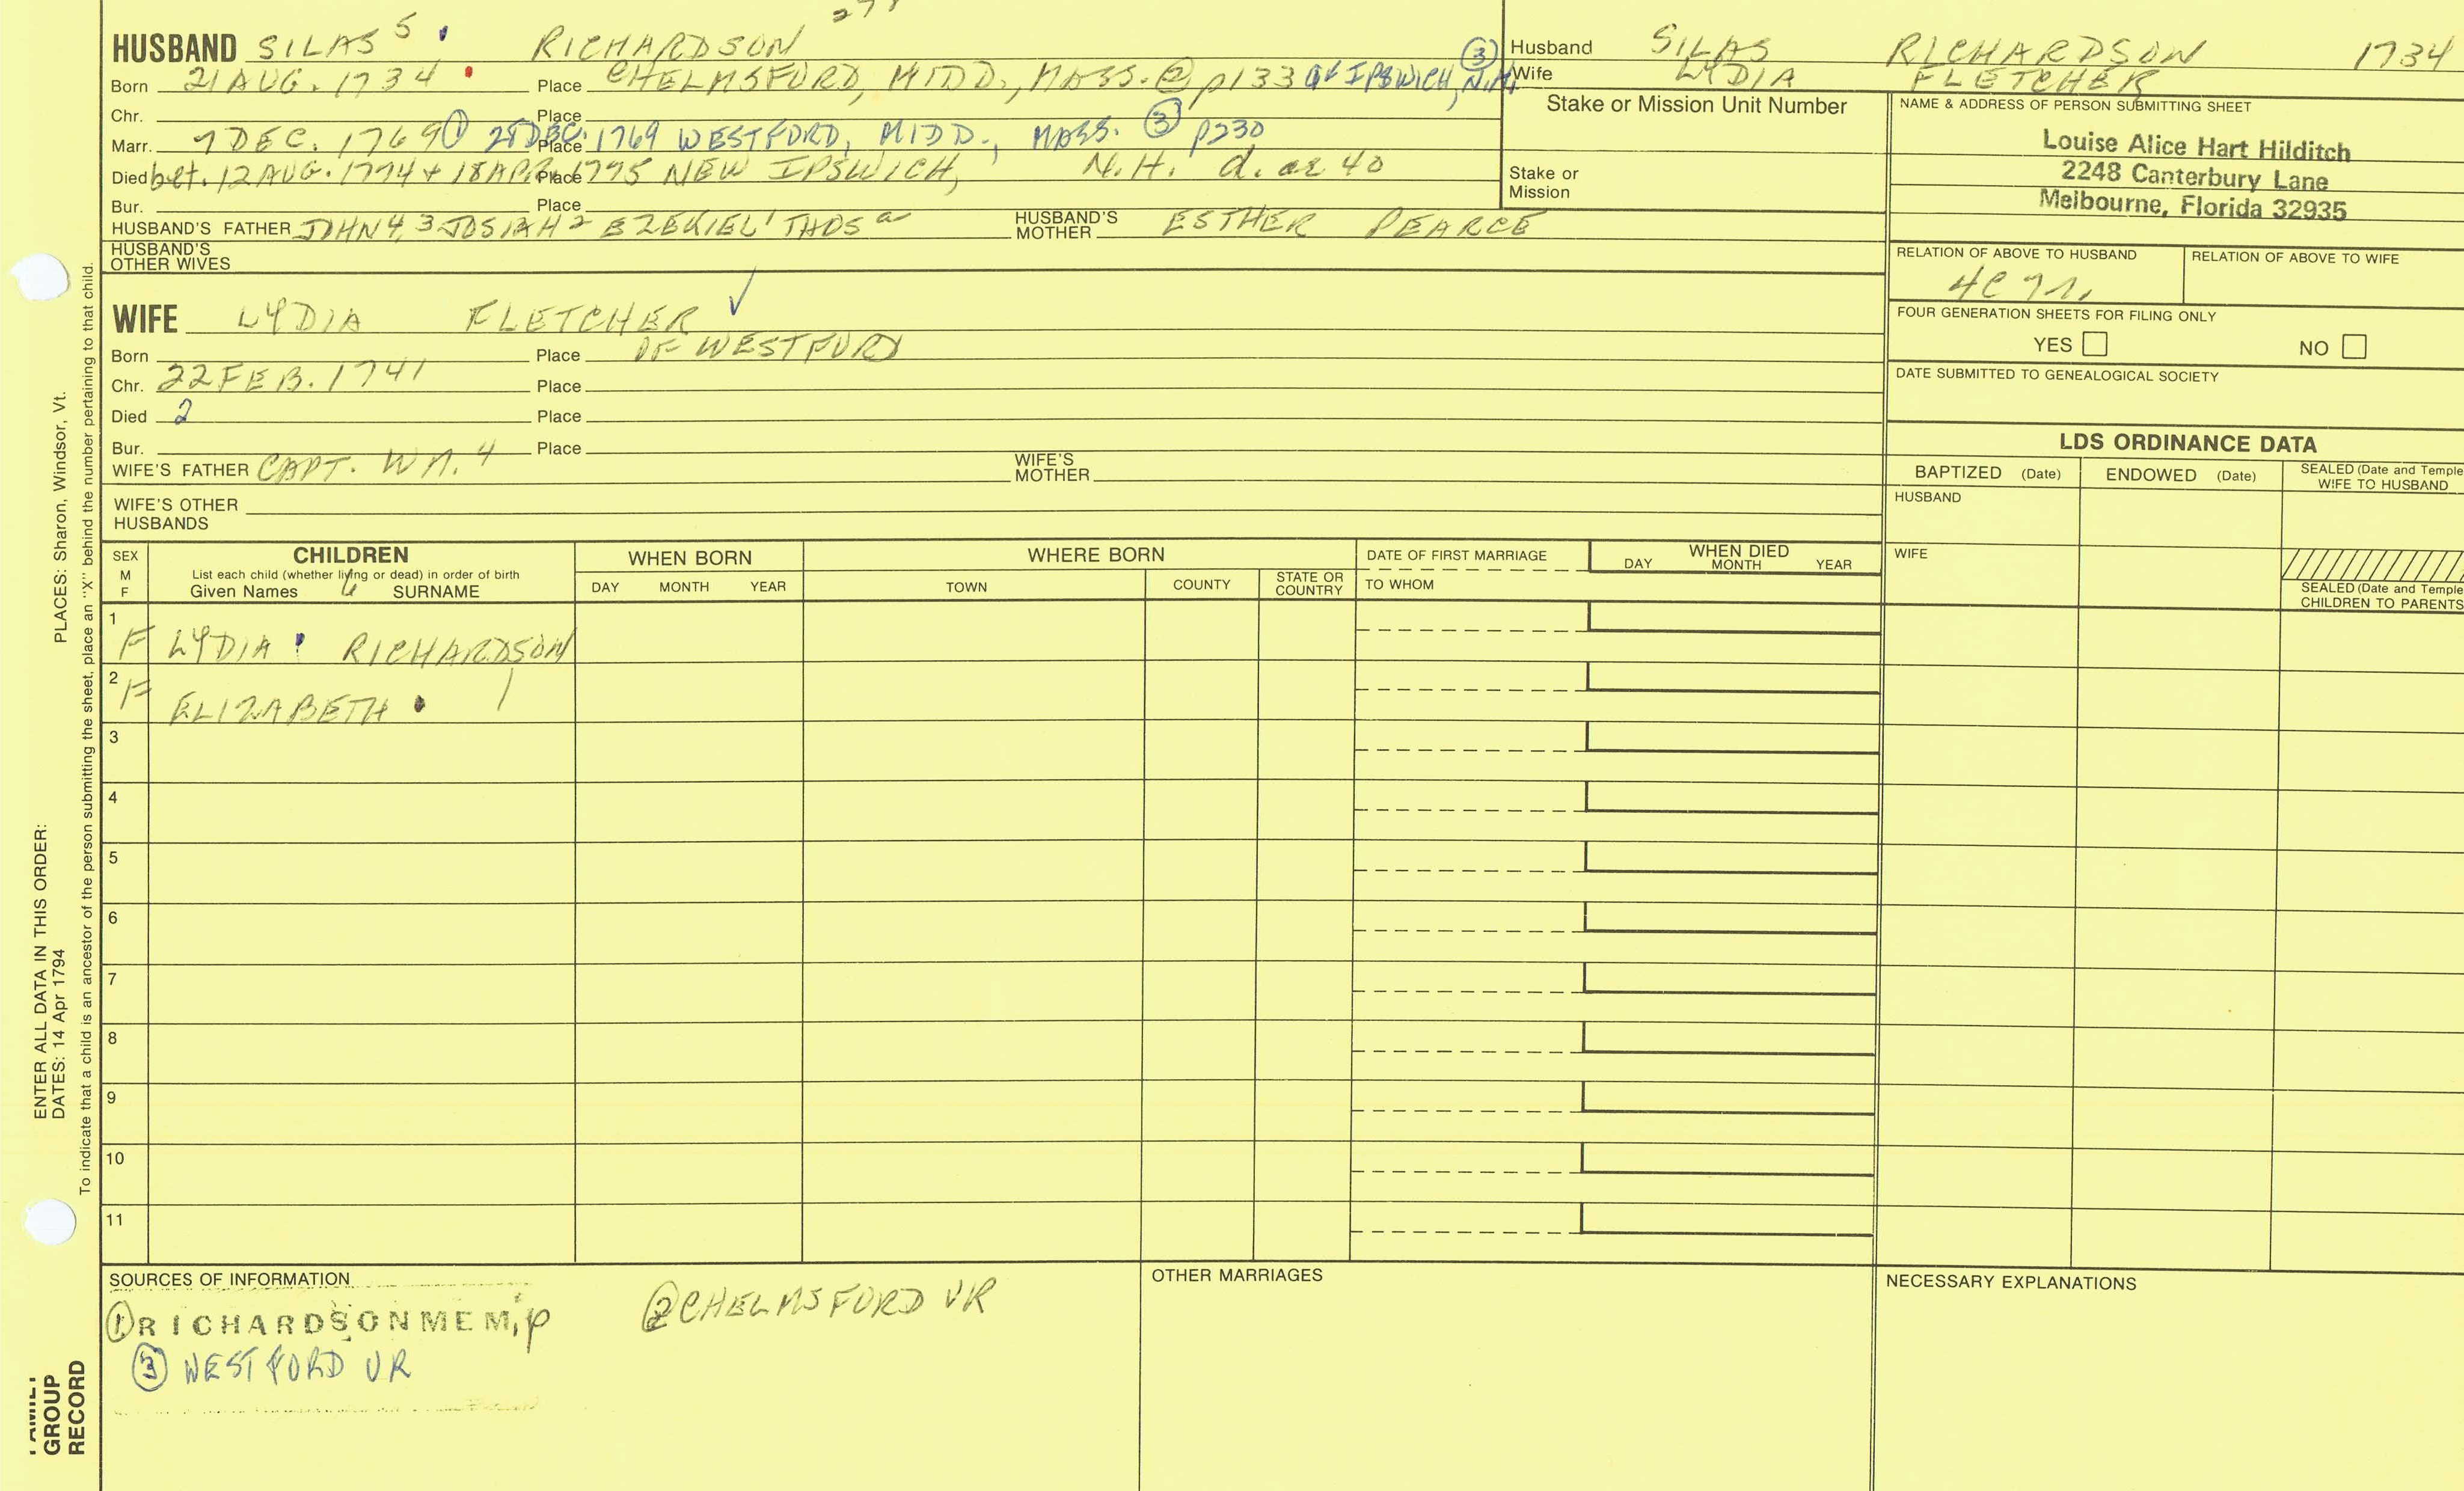 HUSBAND SILAS 5 RICHARDSON
Born 21 AUG. 1734 Place CHELMSFORD, MIDD., MASS. ② p133 of IPSWICH, N.H. ③
Chr. Place
Marr. 7 DEC. 1769 ① 28 DEC. 1769 Place WESTFORD, MIDD., MASS. ③ p230
Died bet. 12 AUG. 1774 + 18 APR. 1775 Place NEW IPSWICH, N.H. d. ae 40
Bur. Place
HUSBAND'S FATHER JOHN 4, 3 JOSIAH 2 EZEKIEL 1 THOS a HUSBAND'S MOTHER ESTHER PEARCE
HUSBAND'S OTHER WIVES
WIFE LYDIA FLETCHER ✓
Born Place OF WESTFORD
Chr. 22 FEB. 1741 Place
Died 2 Place
Bur. Place
WIFE'S FATHER CAPT. WM. 4 WIFE'S MOTHER
WIFE'S OTHER HUSBANDS
Husband SILAS RICHARDSON 1734
Wife LYDIA FLETCHER
Stake or Mission Unit Number
Stake or Mission
NAME & ADDRESS OF PERSON SUBMITTING SHEET
Louise Alice Hart Hilditch
2248 Canterbury Lane
Melbourne, Florida 32935
RELATION OF ABOVE TO HUSBAND RELATION OF ABOVE TO WIFE
FOUR GENERATION SHEETS FOR FILING ONLY
YES NO
DATE SUBMITTED TO GENEALOGICAL SOCIETY
LDS ORDINANCE DATA
BAPTIZED (Date) ENDOWED (Date) SEALED (Date and Temple
WIFE TO HUSBAND
HUSBAND
WIFE
SEALED (Date and Temple
CHILDREN TO PARENTS
SEX M F CHILDREN
List each child (whether living or dead) in order of birth
Given Names SURNAME
WHEN BORN
DAY MONTH YEAR
WHERE BORN
TOWN COUNTY STATE OR COUNTRY
DATE OF FIRST MARRIAGE
TO WHOM
WHEN DIED
DAY MONTH YEAR
1 F LYDIA RICHARDSON
2 F ELIZABETH
3
4
5
6
7
8
9
10
11
SOURCES OF INFORMATION
① RICHARDSON MEM, p
② CHELMSFORD VR
③ WESTFORD VR
OTHER MARRIAGES
NECESSARY EXPLANATIONS
ENTER ALL DATA IN THIS ORDER:
DATES: 14 Apr 1794 PLACES: Sharon, Windsor, Vt.
To indicate that a child is an ancestor of the person submitting the sheet, place an "X" behind the number pertaining to that child.
FAMILY
GROUP
RECORD